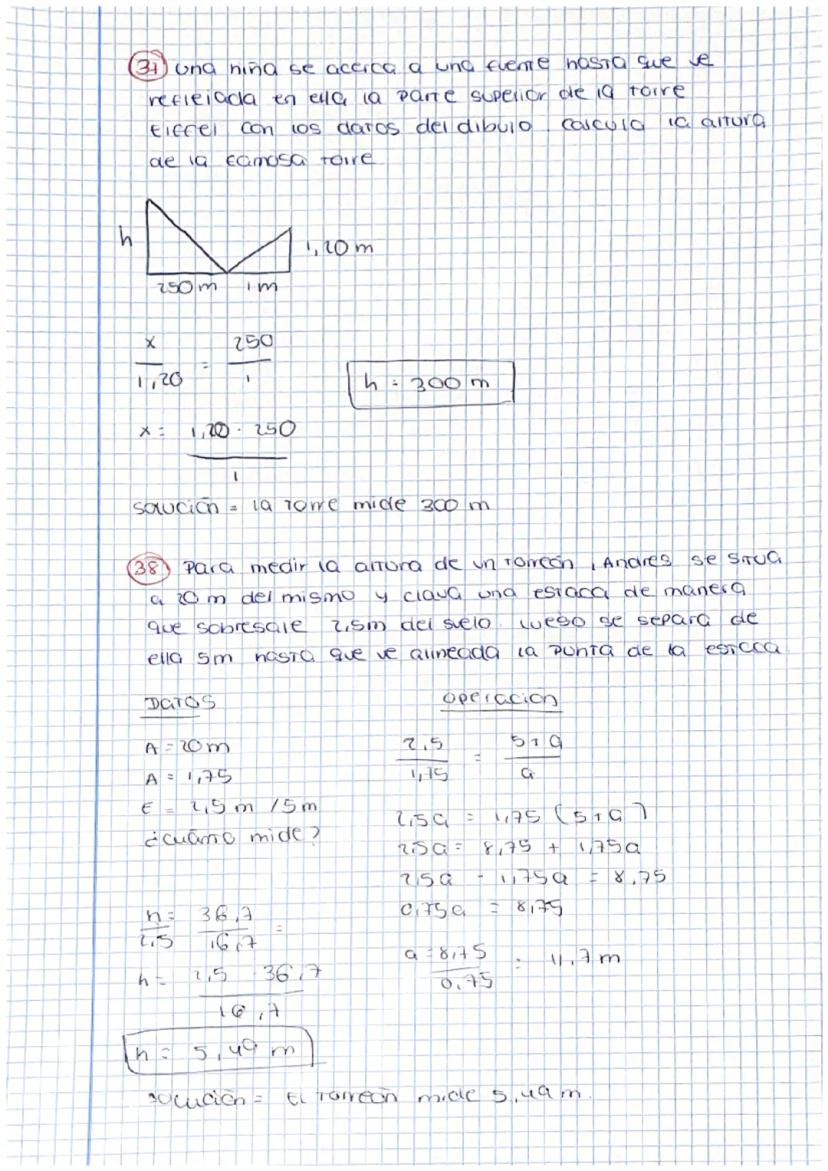 37 una niña se acerca a una fuente hasta que ve
reflejada en ella la parte superior de la torre
Eiffel con los datos del dibujo. calcula la altura
de la famosa torre
h
1,20 m
250 m 1 m
x/1,20 = 250/1
h = 300 m
x = 1,20 · 250 / 1
solución = la torre mide 300 m
38 Para medir la altura de un torreón, Andres se situa
a 20 m del mismo y clava una estaca de manera
que sobresale 2,5m del suelo. luego se separa de
ella 5m hasta que ve alineada la punta de la estaca
DATOS
operación
A = 20m
A = 1,75
E = 2,5 m / 5m
¿cuánto mide?
2,5/1,75 = 5+a/a
2,5a = 1,75 (5+a)
2,5a = 8,75 + 1,75a
2,5a - 1,75a = 8,75
0,75a = 8,75
a = 8,75/0,75 = 11,7 m
h/2,5 = 36,7/16,7 =
h = 2,5 · 36,7 / 16,7
h = 5,49 m
solución = El torreón mide 5,49 m.